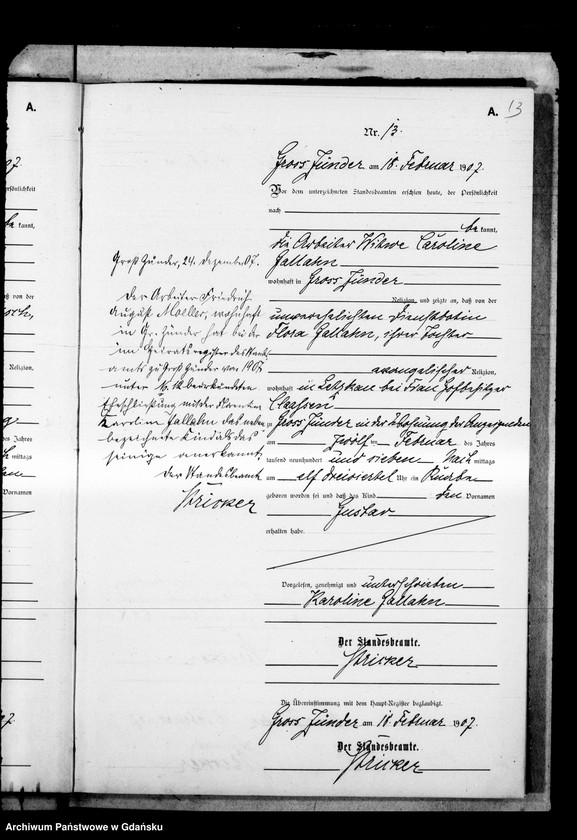 A.
A.
13
Nr. 13.
Gross Zünder am 18. Februar 1907.
Vor dem unterzeichneten Standesbeamten erschien heute, der Persönlichkeit
nach
be kannt,
die Arbeiter Witwe Caroline
Gallahn
wohnhaft in Gross Zünder
Religion, und zeigte an, daß von der
unverehelichten Dienstbotin
Flora Gallahn, ihrer Tochter
evangelischer Religion,
wohnhaft in Letzkau bei Frau Hofbesitzer
Claassen
zu Gross Zünder in der Wohnung der Anzeigenden
am zwölften Februar des Jahres
tausend neunhundert und sieben Nach mittags
um elf dreiviertel Uhr ein Knabe
geboren worden sei und daß das Kind den Vornamen
Gustav
erhalten habe.
Vorgelesen, genehmigt und unterschrieben
Karoline Gallahn
Der Standesbeamte.
Stricker
Die Übereinstimmung mit dem Haupt-Register beglaubigt.
Gross Zünder am 18. Februar 1907.
Der Standesbeamte.
Stricker
Groß Zünder, 24. Dezember 07.
Der Arbeiter Friedrich
August Moeller, wohnhaft
in Gr. Zünder hat bei der
im Heiratsregister des Stands-
amts zu Groß Zünder von 1907
unter beurkundeten
Eheschließung mit der
Gallahn das neben
bezeichnete Kind als das
seinige anerkannt.
Der Standesbeamte
Stricker
Archiwum Państwowe w Gdańsku